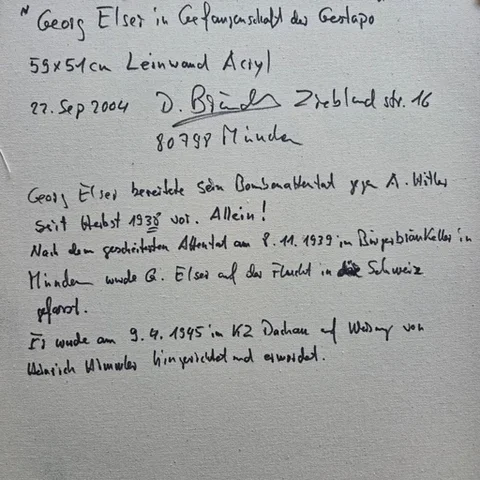 "Georg Elser in Gefangenschaft der Gestapo"
59x51cm Leinwand Acryl
22. Sep 2004 D. Zieblandstr. 16
80798 München
Georg Elser bereitete sein Bombenattentat gegen A. Hitler
seit Herbst 1938 vor. Allein!
Nach dem gescheiterten Attentat am 8.11.1939 im Bürgerbräukeller in
München wurde G. Elser auf der Flucht in die Schweiz
gefasst.
Er wurde am 9.4.1945 im KZ Dachau auf Weisung von
Heinrich Himmler hingerichtet und ermordet.